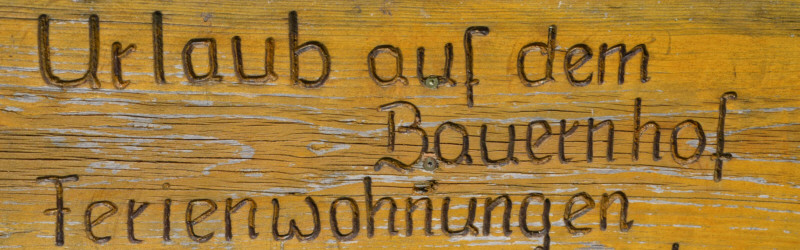 Urlaub auf dem
Bauernhof
Ferienwohnungen